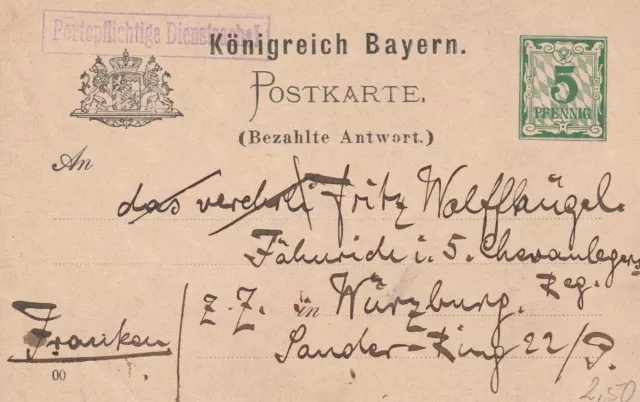 Portopflichtige Dienstsache!
Königreich Bayern.
POSTKARTE.
(Bezahlte Antwort.)
5
PFENNIG
An
das verehrl Fritz Wolffhügel.
Fähnrich i. 5. Chevaulegers
Reg.
z. Z. in Würzburg.
Franken
Sander-Ring 22/P.
00
2,50